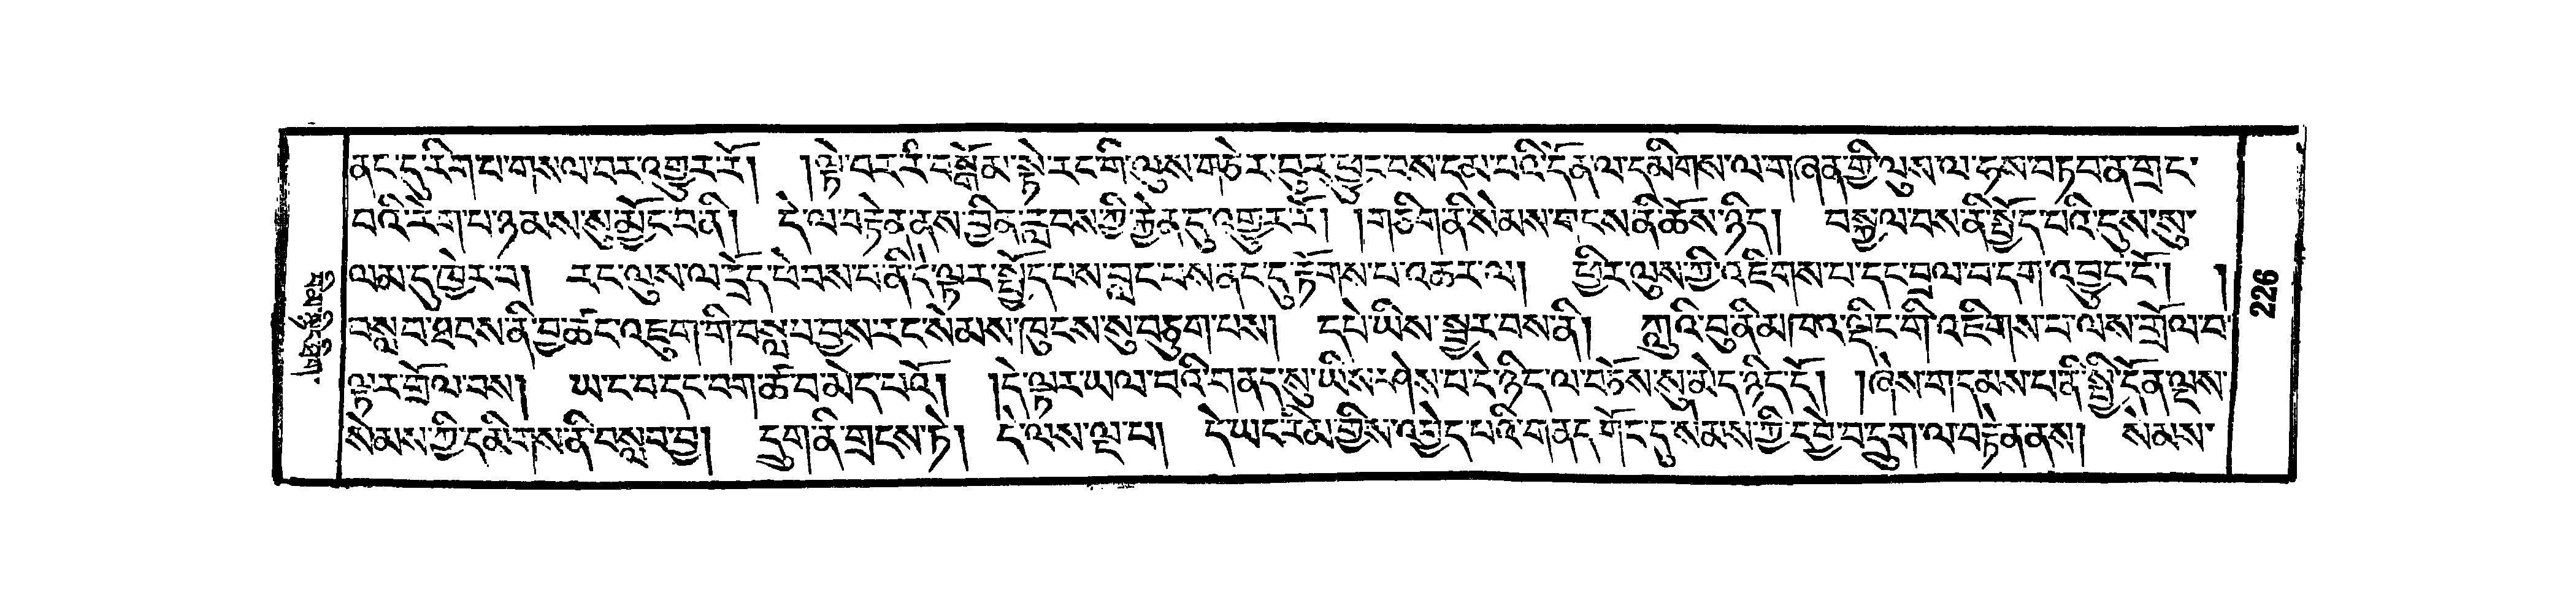 ནང་དུ་རིག་པ་གསལ་བར་འགྱུར་རོ། །ལྟེ་བར་རཾ་བསྒོམ་སྟེ་རང་གི་ལུས་གཅེར་བུར་ཕྱུང་བས་དམ་པའི་དོན་ལ་དམིགས་ལ་གཞན་གྱི་ལུས་ལ་ཧས་བཏབ་ན་གྲང་
བའི་རེག་པ་ཉམས་སུ་མྱོང་བ་ནི། དེ་ལ་བརྟེན་ནས་བྱིན་རླབས་ཀྱི་རྐྱེན་དུ་འགྱུར་རོ། །གཅིག་ནི་སེམས་དྭངས་ནི་ཆོས་ཉིད། བསྐྱལ་བས་ནི་སྤྱོད་པའི་དུས་སུ་
ལམ་དུ་ཁྱེར་བ། རང་ལུས་ལ་དྲོད་ཕེབས་པ་ནི་དེ་ལྟར་སྤྱོད་པས་བླང་པས་ནང་དུ་རྟོགས་པ་འཆར་ལ། ཕྱིར་ལུས་ཀྱི་འཇིགས་པ་དང་བྲལ་བ་དག་འབྱུང་ངོ་། །
བསླབ་ཐབས་ནི་བྱ་ཚང་འཇུག་གི་བསླབ་བྱས་རང་སེམས་ཁུངས་སུ་བཅུག་པས། དཔེ་ཡིས་སྦྱར་བས་ནི། ཀླུའི་བུ་ནི་མཁའ་ལྡིང་གི་འཇིགས་པ་ལས་གྲོལ་བ་
ལྟར་གྲོལ་བས། ཡ་ང་བ་དང་བག་ཚ་བ་མེད་པའོ། །དེ་ལྟར་ཡལ་བའི་གནད་སུ་ཡིས་ཤེས་པ་དེ་ཉིད་ལ་བཅོས་སུ་མེད་ཉིད་དོ། །ཞེས་གདམས་པ་ནི་སྤྱི་དོན་ལྔས་
སེམས་ཀྱི་དམིགས་ནི་བསླབ་བྱ། དྲུག་ནི་གྲངས་ཏེ། དེ་ལས་ལྔ་པ། དེ་ཡང་རིམ་གྱིས་འབྱེད་པའི་གནད་གོང་དུ་སེམས་ཀྱི་དབྱེ་བ་དྲུག་ལ་བརྟེན་ནས། སེམས་
226